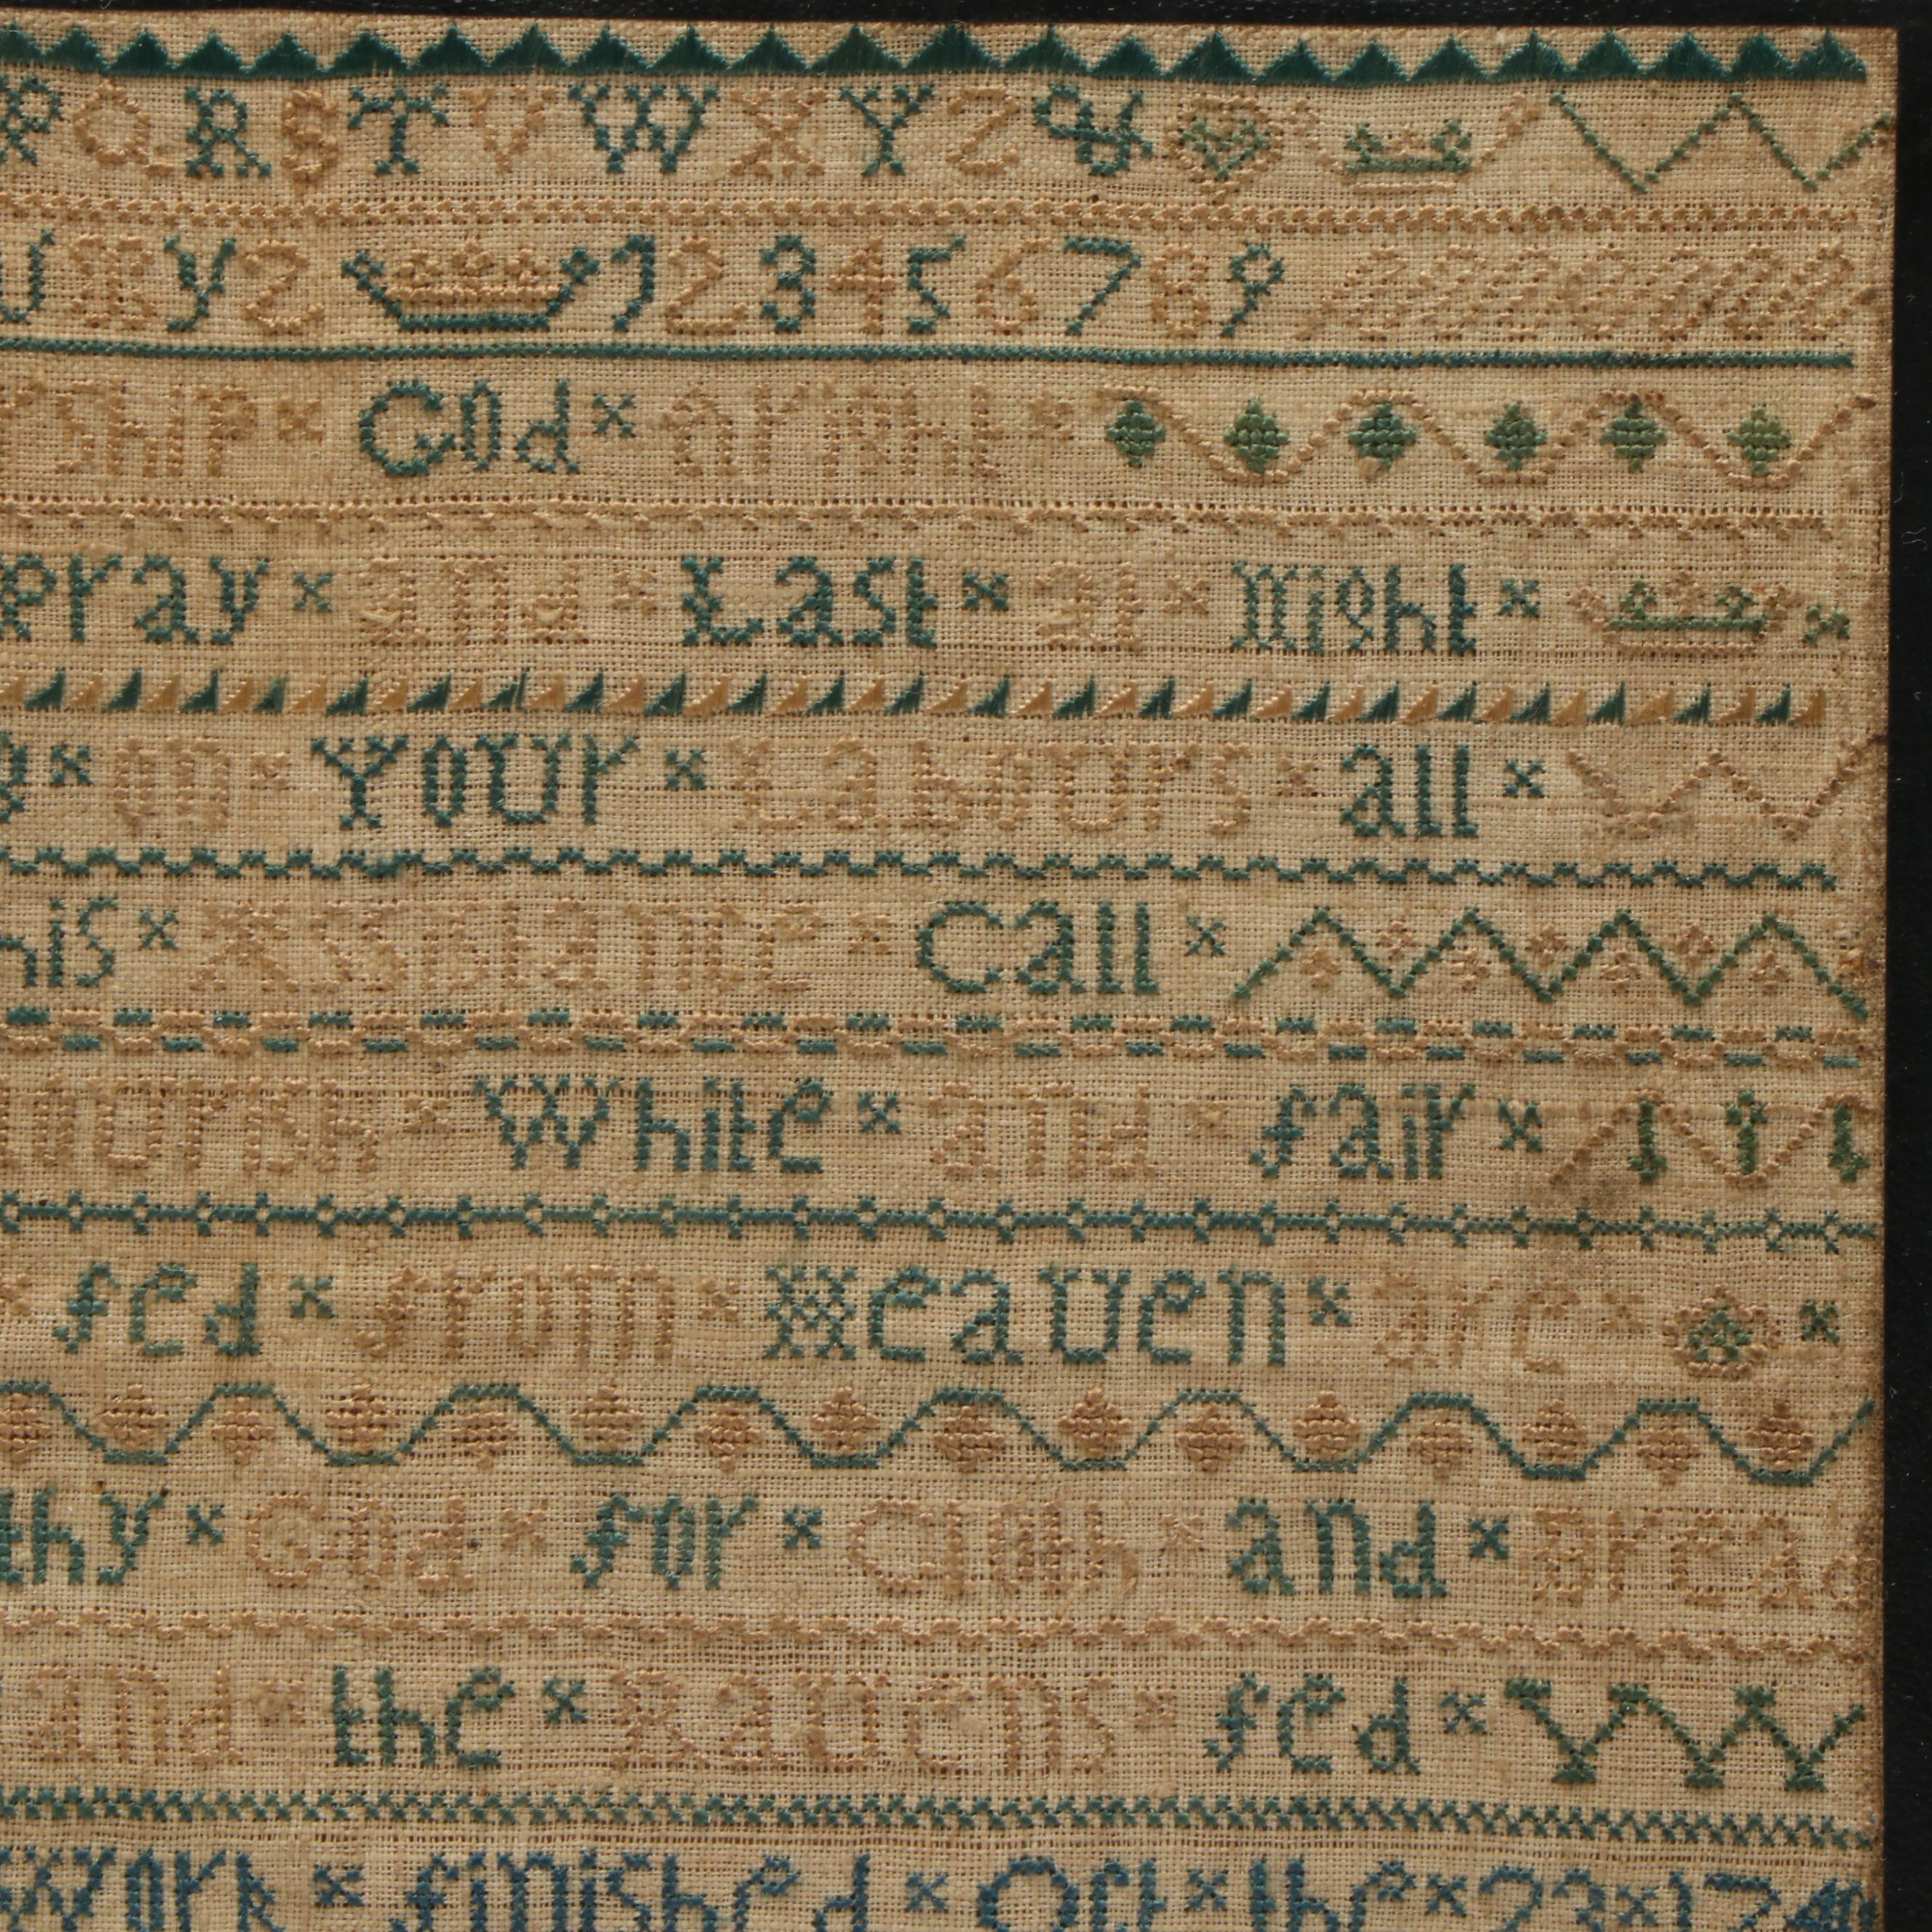 P Q R S T V W X Y Z &
U X Y Z 1 2 3 4 5 6 7 8 9
ship × God × aright ×
Pray × and × Last × at × Night ×
× on × Your × Labours × all ×
his × Assistance × Call ×
nourish × White × and × fair ×
fed × from × Heaven × are × ×
thy × God × for × Cloth × and × Bread
and × the × Ravens × fed ×
Work × finished × Oct × the × 23 × 174